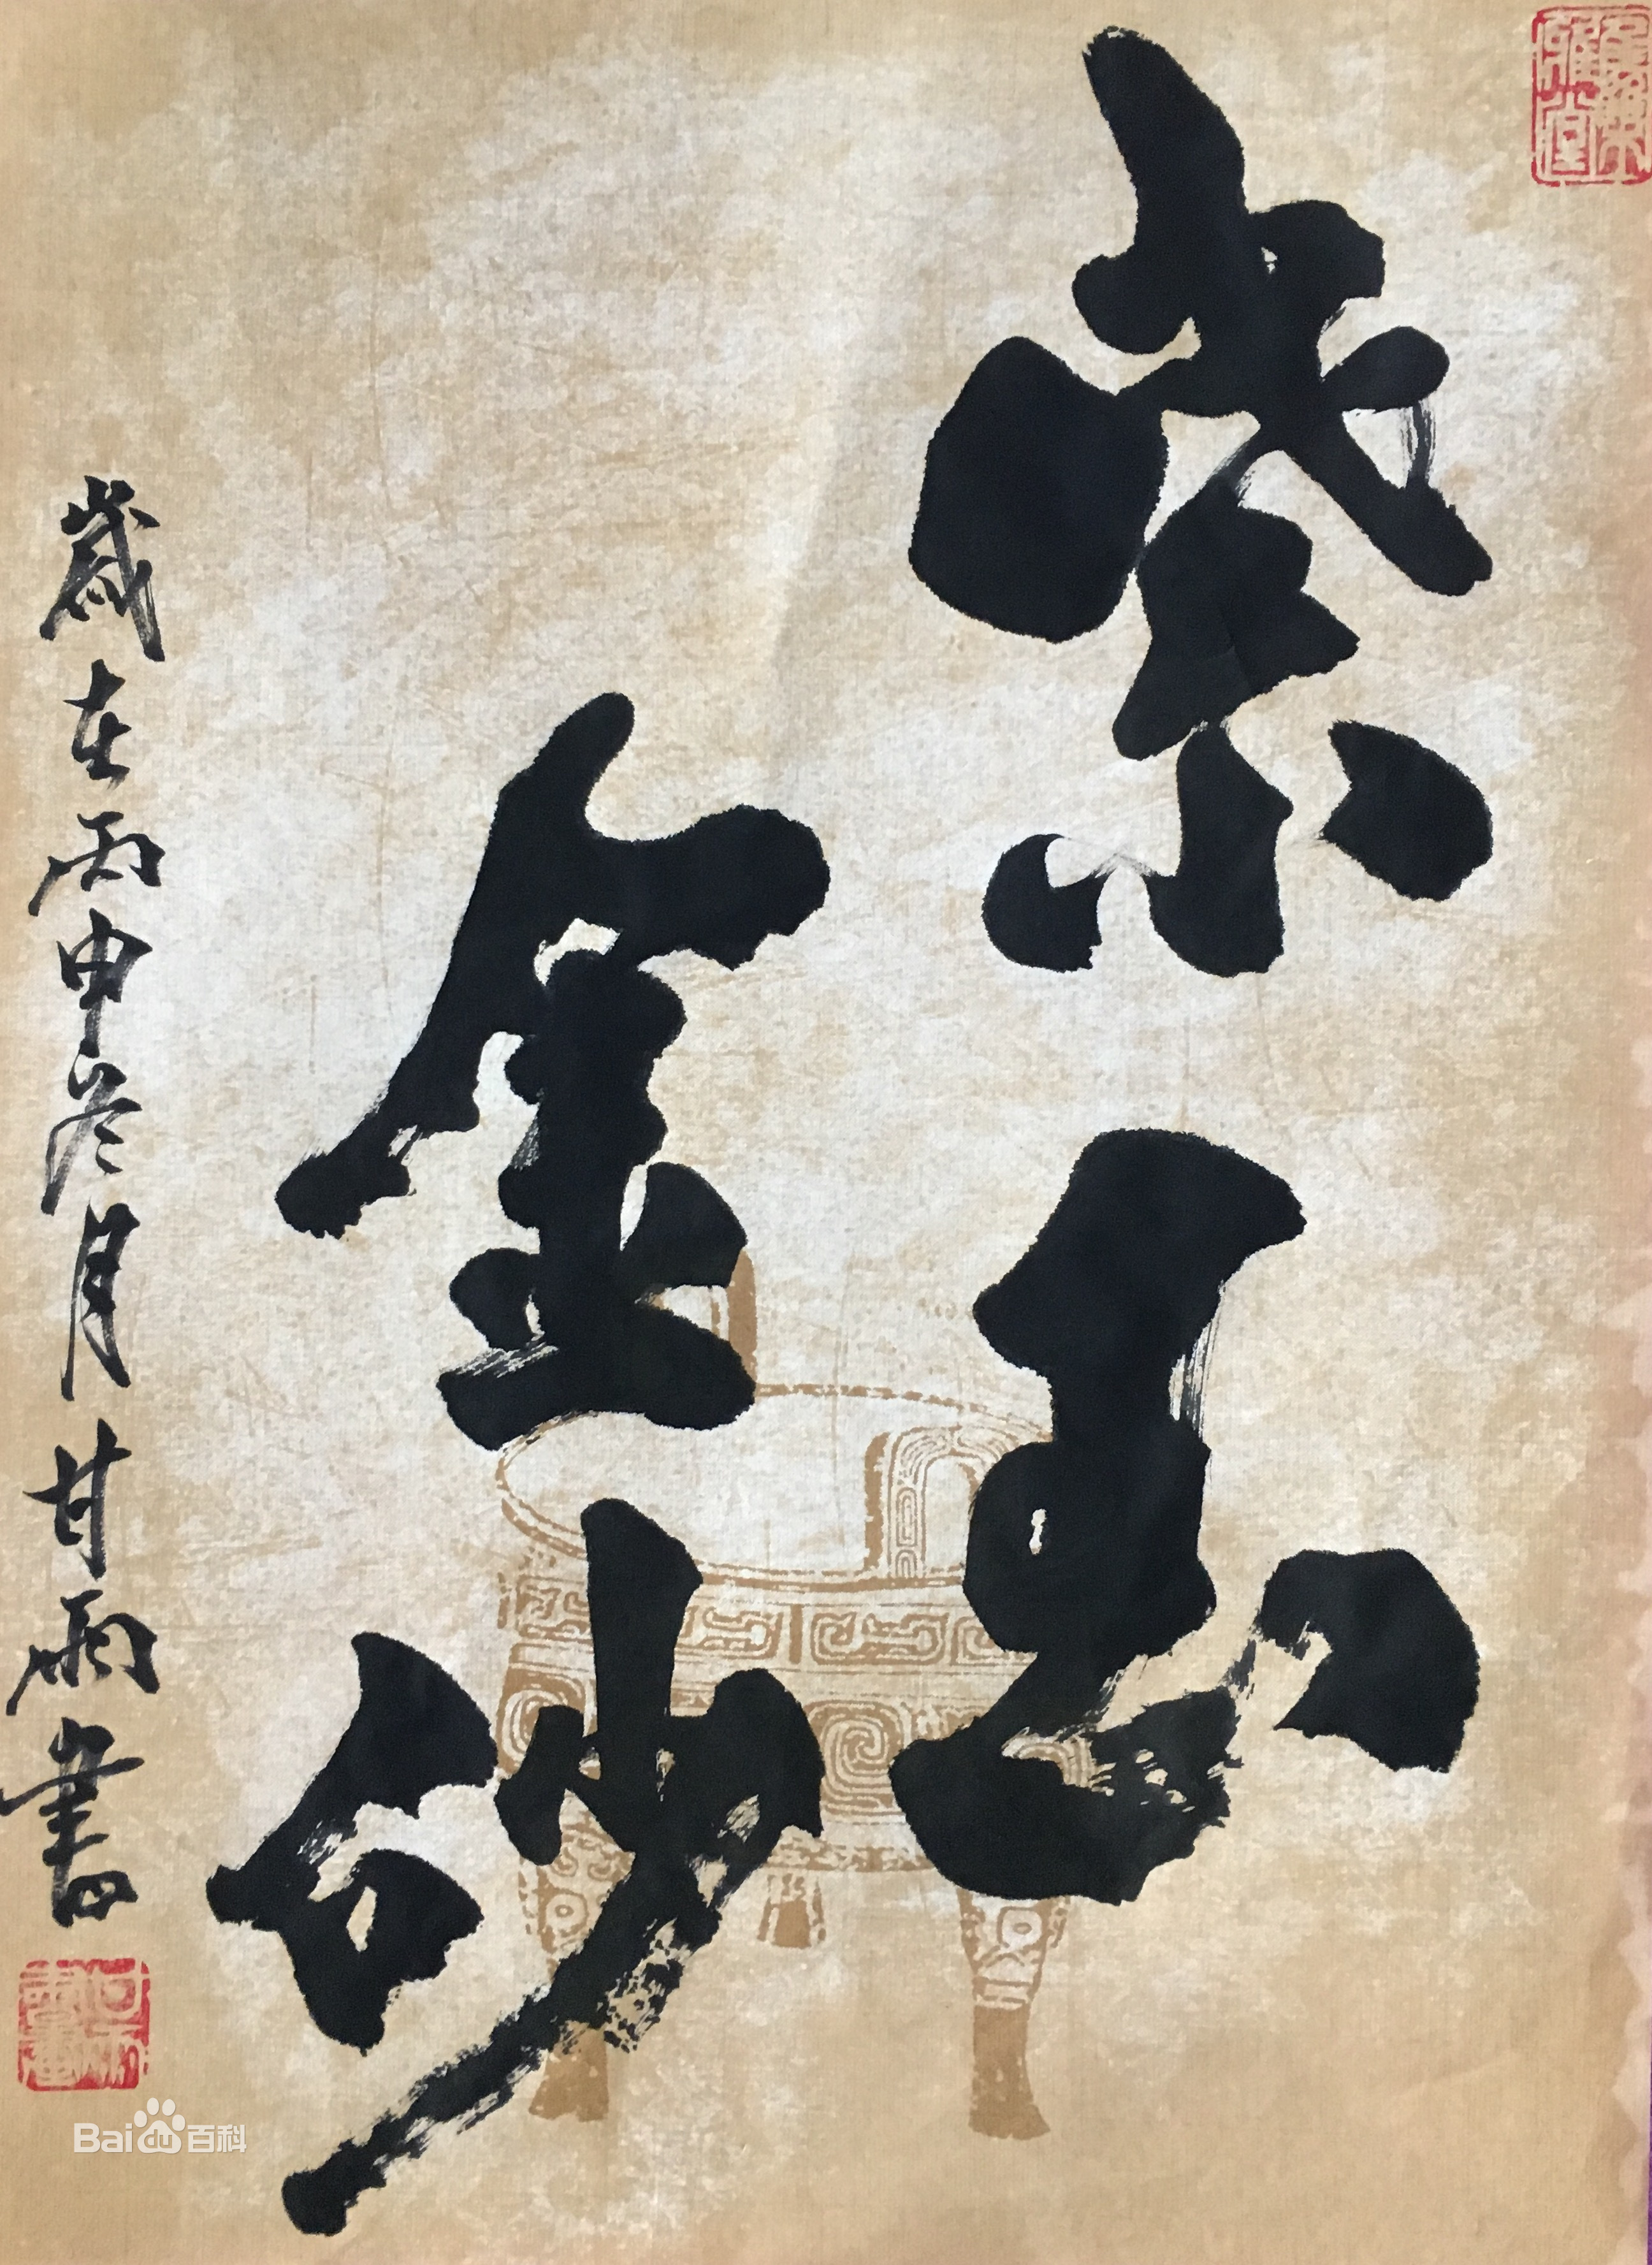 紫玉
金砂
歲在丙申冬月甘雨書
Bai du 百科